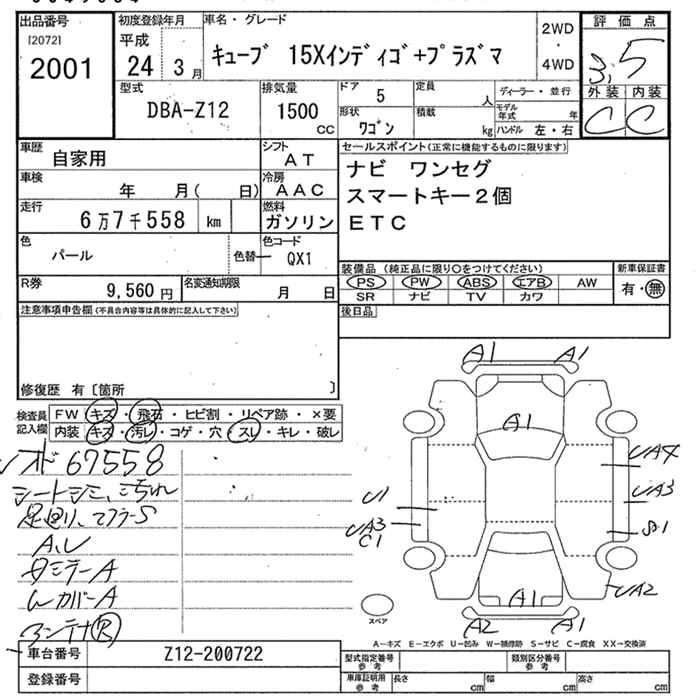 出品番号
[2072]
2001
初度登録年月
平成
24 3月
車名・グレード
ｷｭｰﾌﾞ 15Xｲﾝﾃﾞｨｺﾞ+ﾌﾟﾗｽﾞﾏ
2WD
・
4WD
評価点
3.5
外装 内装
C C
型式
DBA-Z12
排気量
1500 CC
ドア 5
形状 ﾜｺﾞﾝ
定員 人
積載 kg
ディーラー・並行
モデル年式 年
ハンドル 左・右
車歴 自家用
シフト AT
車検 年 月( 日)
冷房 AAC
走行 6万7千558 km
燃料 ガソリン
色 パール
色替 ー
色コード QX1
R券 9,560円
名変通知期限 月 日
セールスポイント(正常に機能するものに限ります)
ナビ ワンセグ
スマートキー2個
ETC
装備品 (純正品に限り○をつけてください)
PS PW ABS エアB AW
SR ナビ TV カワ
新車保証書
有・無
後日品
注意事項申告欄(不具合内容等は具体的に記入して下さい)
修復歴 有 [箇所 ]
検査員記入欄
FW キズ・飛石・ヒビ割・リペア跡・×要
内装 キズ・汚レ・コゲ・穴・スレ・キレ・破レ
67558
A,L
ミラーA
カバーA
A1 A1
A1
UA4
UA3
S1
UA2
U1
UA3
C1
A1
A2 A1
スペア
A−キズ E−エクボ U−凹み W−補修跡 S−サビ C−腐食 XX−交換済
車台番号 Z12-200722
登録番号
型式指定番号 参考
類別区分番号 参考
車庫証明用 参考
長さ cm
幅 cm
高さ cm